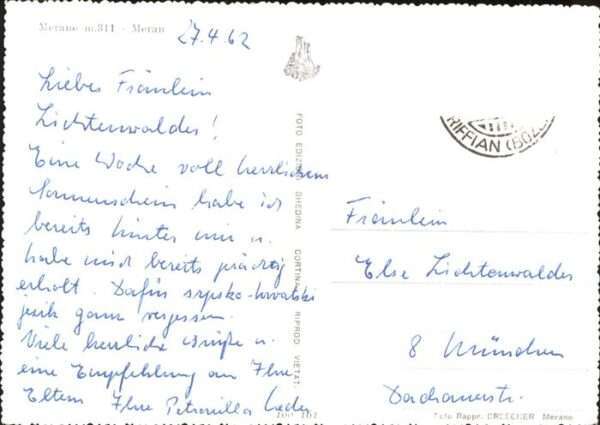 Merano m.311 - Meran
27.4.62
Liebes Fräulein
Lichtenwalder!
Eine Woche voll herrlichem
Sonnenschein habe ich
bereits hinter mir u.
habe mich bereits prächtig
erholt. Dafür srpsko-hrvatski
jezik ganz vergessen.
Viele herzliche Grüße u.
eine Empfehlung an Ihre
Eltern Ihre Petronilla
FOTO EDIZIONI GHEDINA CORTINA RIPROD. VIETATA
RIFFIAN (BOZ
Fräulein
Else Lichtenwalder
8 München
Dachauerstr.
Foto Rappr. DRESCHER Merano